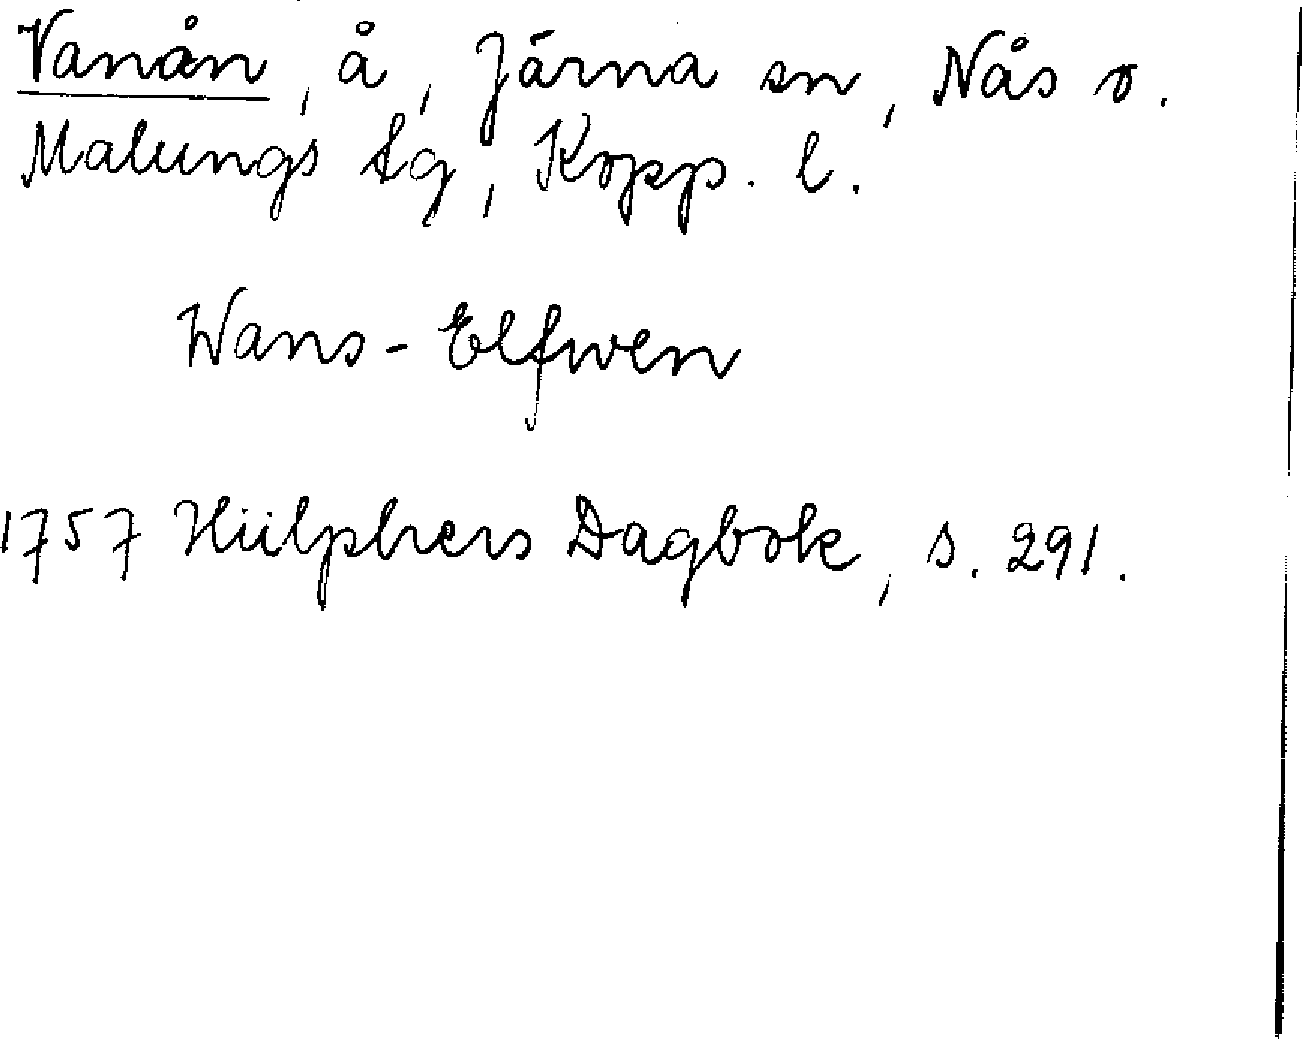 Vanån, å, Järna sn, Nås o.
Malungs tg, Kopp. l.
Wans-Elfwen
1757 Hülphers Dagbok, s. 291.